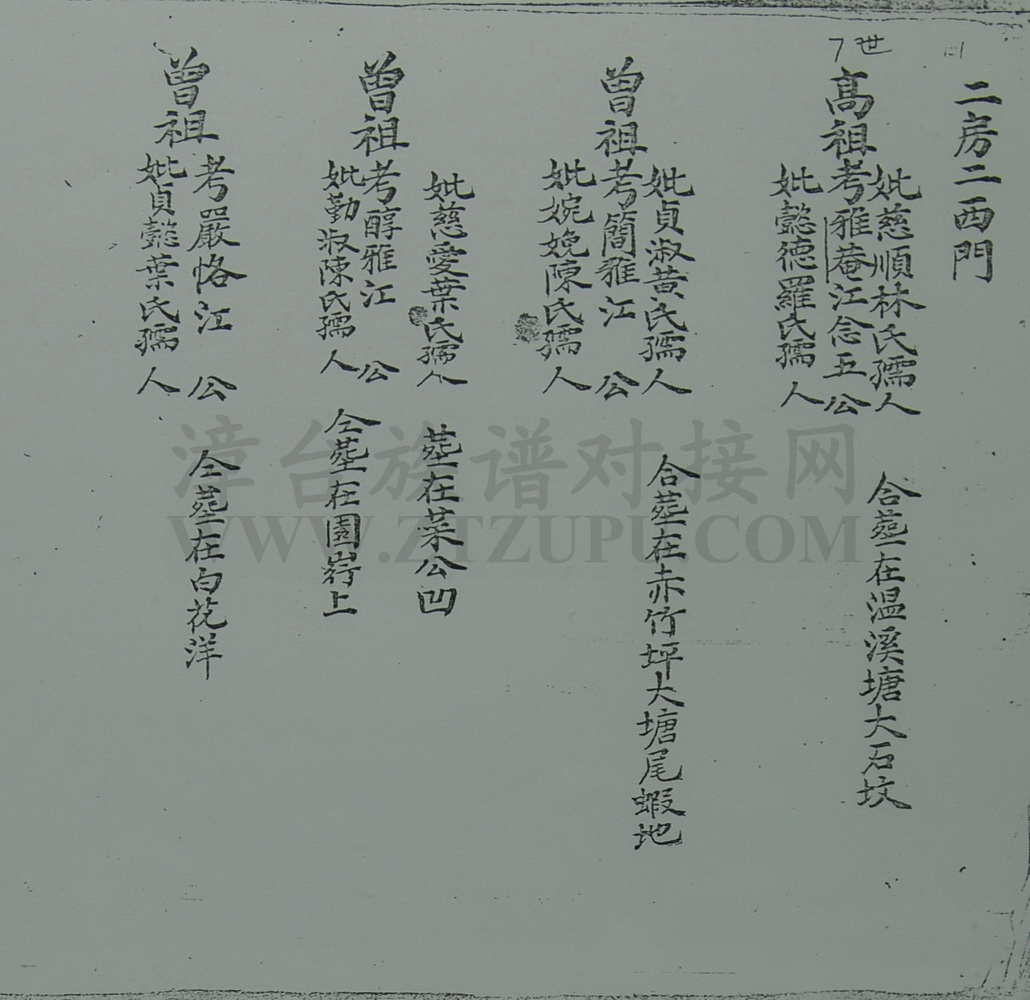 二房二西門
7世
高祖
妣慈順林氏孺人
考雅菴江念五公
妣懿德羅氏孺人
合塟在温溪塘大石坟
曾祖
妣貞淑黄氏孺人
考簡雅江公
妣婉娩陳氏孺人
合塟在赤竹坪大塘尾蝦地
曾祖
妣慈愛葉氏孺人
塟在菜公凹
考醇雅江公
妣勤淑陳氏孺人
仝塟在園嵜上
曾祖
考嚴恪江公
妣貞懿葉氏孺人
仝塟在白花洋
漳台族谱对接网
WWW.ZTZUPU.COM